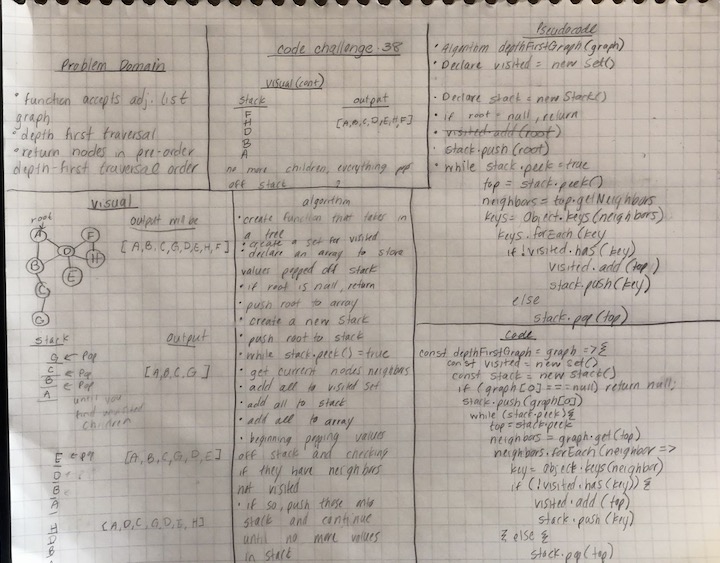 Problem Domain
• function accepts adj. list
graph
• depth first traversal
• return nodes in pre-order
depth-first traversal order
code challenge 38
visual (cont)
stack
output
F
H
D
B
A
[A,B,C,D,E,H,F]
no more children, everything pop
off stack
Pseudocode
• Algorithm depthFirstGraph(graph)
• Declare visited = new Set()
• Declare stack = new Stack()
• if root = null, return
• visited.add(root)
• stack.push(root)
• while stack.peek = true
top = stack.peek()
neighbors = top.getNeighbors
keys = Object.keys(neighbors)
keys.forEach(key
if !visited.has(key)
visited.add(top)
stack.push(key)
else
stack.pop(top)
visual
root
output will be
[A,B,C,G,D,E,H,F]
A
F
D
H
B
E
C
G
stack
output
G ← Pop
C ← Pop
B ← Pop
A
[A,B,C,G]
until you
find
children
E ← 
D
B
A
[A,B,C,G,D,E]
H
D
B
[A,D,C,G,D,E,H]
algorithm
• create function that takes in
a tree
• create a set for visited
• declare an array to store
values popped off stack
• if root is null, return
• push root to array
• create a new stack
• push root to stack
• while stack.peek() = true
• get current nodes neighbors
• add all to visited set
• add all to stack
• add all to array
• beginning popping values
off stack and checking
if they have neighbors
not visited
• if so, push those into
stack and continue
until no more values
in stack
Code
const depthFirstGraph = graph => {
const visited = new Set()
const stack = new Stack()
if (graph[0] === null) return null;
stack.push(graph[0])
while (stack.peek) {
top = stack.peek
neighbors = graph.get(top)
neighbors.forEach(neighbor =>
key = Object.keys(neighbor)
if (!visited.has(key)) {
visited.add(top)
stack.push(key)
} else {
stack.pop(top)